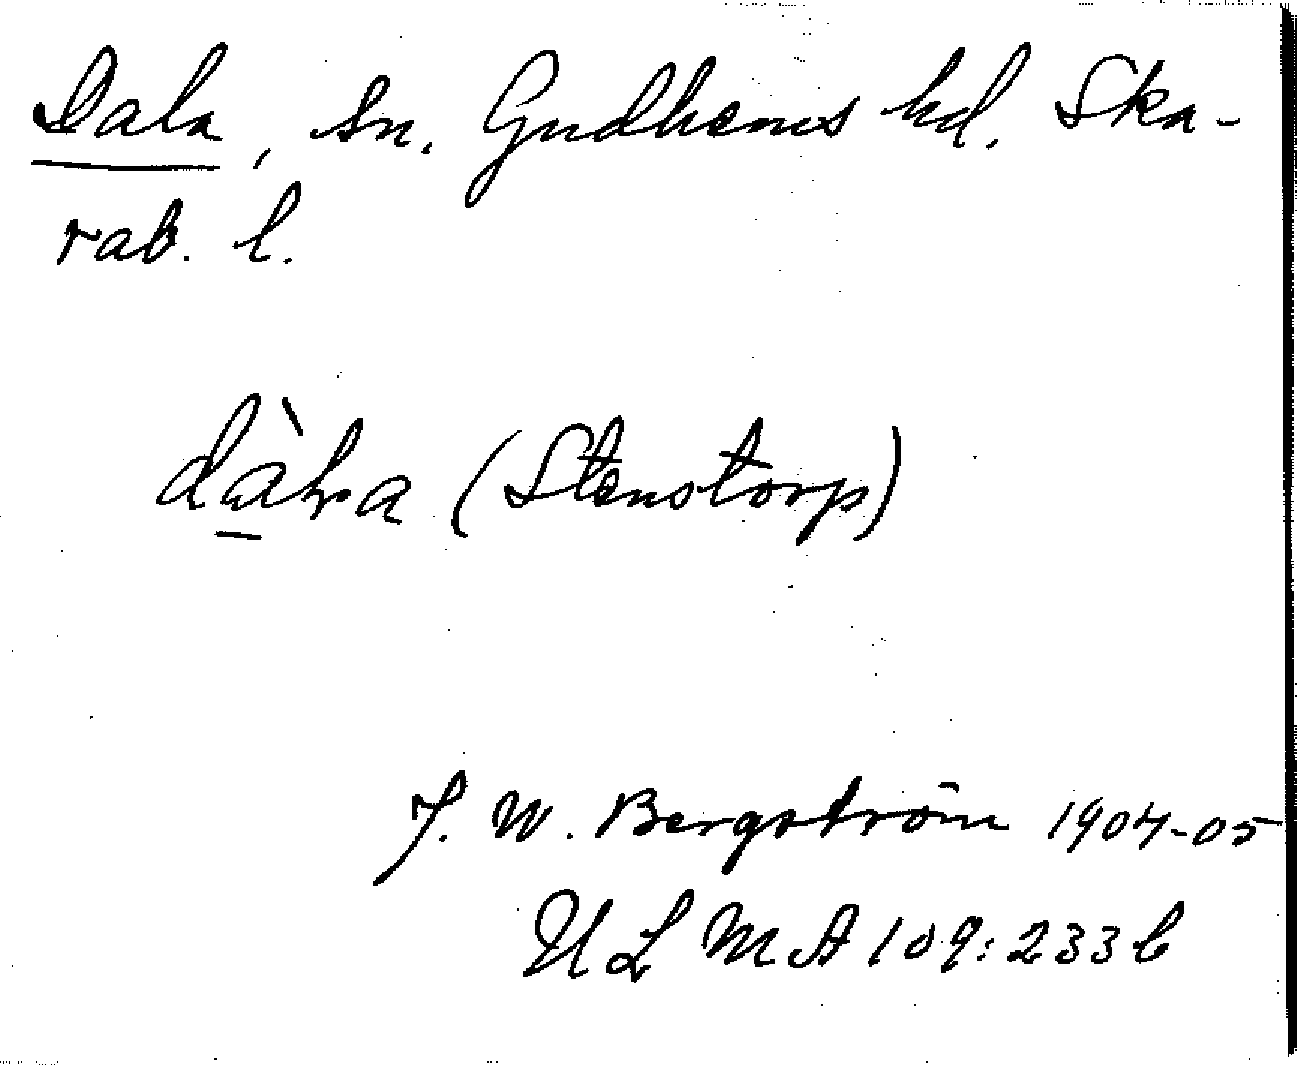 Dala, sn. Gudhems hd. Ska-
rab. l.
dàla (Stenstorp)
J. W. Bergström 1904-05
ULMA 109:233b